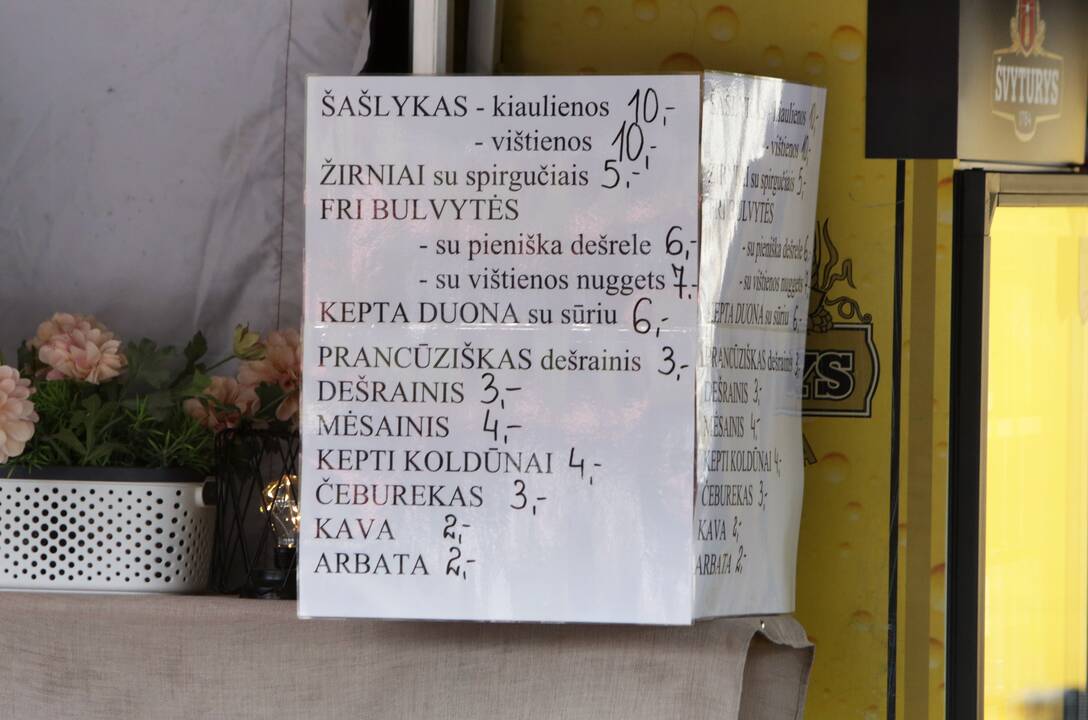 ŠAŠLYKAS - kiaulienos 10,-
- vištienos 10,-
ŽIRNIAI su spirgučiais 5,-
FRI BULVYTĖS
- su pieniška dešrele 6,-
- su vištienos nuggets 7,-
KEPTA DUONA su sūriu 6,-
PRANCŪZIŠKAS dešrainis 3,-
DEŠRAINIS 3,-
MĖSAINIS 4,-
KEPTI KOLDŪNAI 4,-
ČEBUREKAS 3,-
KAVA 2,-
ARBATA 2,-
kiaulienos 10,-
- vištienos 10,-
su spirgučiais 5,-
- su pieniška dešrele 6
- su vištienos nuggets 7
KEPTA DUONA su sūriu 6,-
PRANCŪZIŠKAS dešrainis 3,-
DEŠRAINIS 3,-
MĖSAINIS 4,-
KEPTI KOLDŪNAI 4,-
ČEBUREKAS 3,-
KAVA 2,-
ARBATA 2,-
ŠVYTURYS
1784